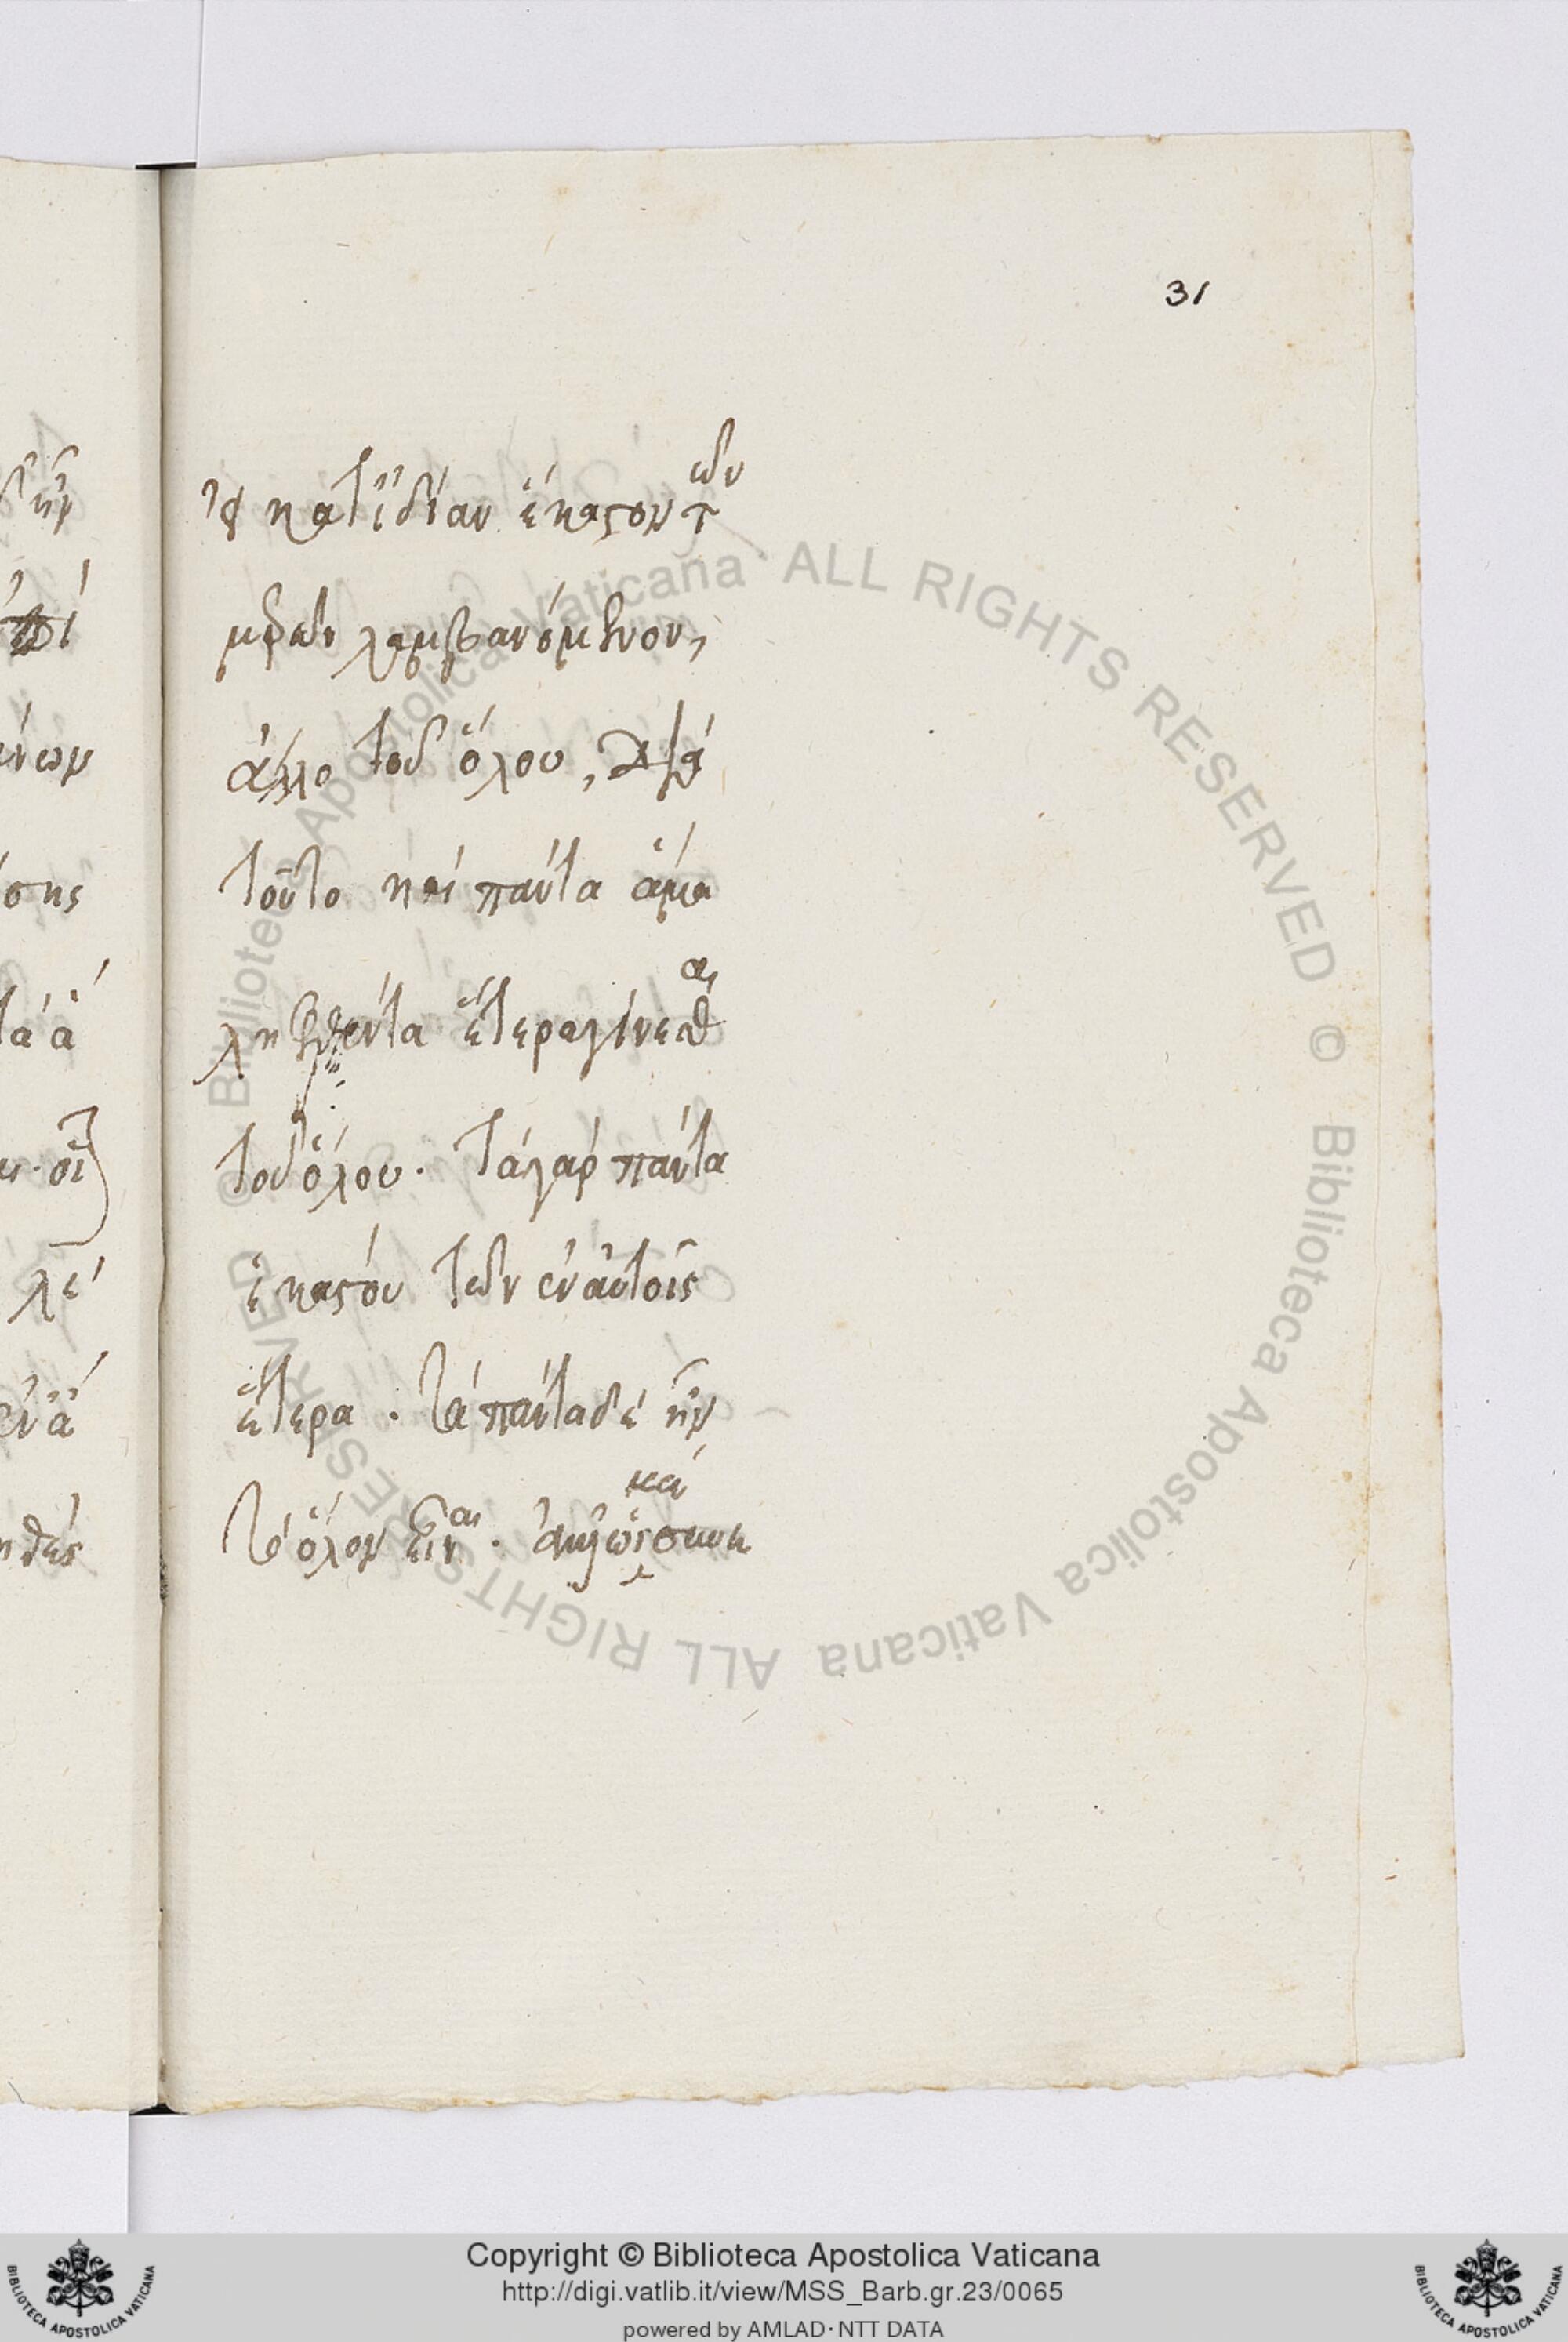 31
δ' ἦν
πὶ
νων
σης
τὰ ἃ
οἱ
λέ
ἐν ἃ
ηθές
κατ ἰδίαν ἕκαστον τῶν
μερῶν λαμβανόμενον,
ἄλλο τοῦ ὅλου, διὰ
τοῦτο καὶ πάντα ἅμα
ληφθέντα ἕτερα γίνεσθαι
τοῦ ὅλου. τὰ γὰρ πάντα
ἑκάστου τῶν ἐν αὐτοῖς
ἕτερα. τὰ πάντα δὲ ἦν
τὸ ὅλον εἶναι.
Copyright © Biblioteca Apostolica Vaticana ALL RIGHTS RESERVED © Biblioteca Apostolica Vaticana ALL RIGHTS RESERVED ©
Copyright © Biblioteca Apostolica Vaticana
http://digi.vatlib.it/view/MSS_Barb.gr.23/0065
powered by AMLAD·NTT DATA
BIBLIOTECA APOSTOLICA VATICANA
BIBLIOTECA APOSTOLICA VATICANA